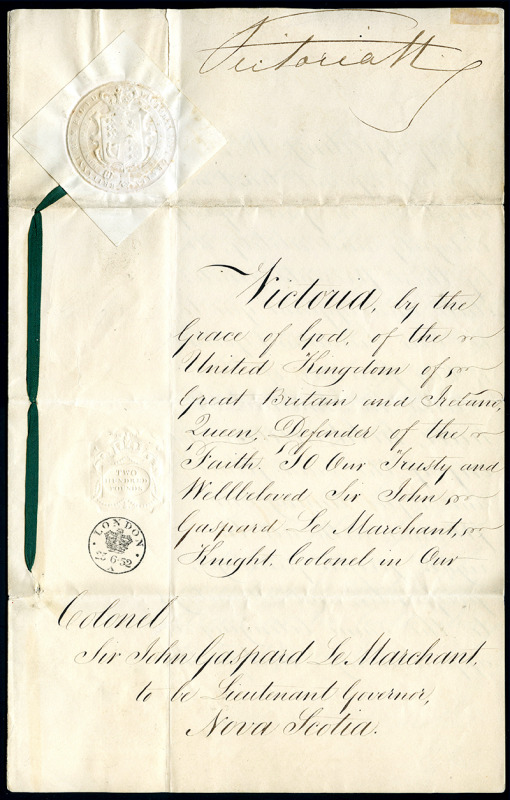 Victoria R
Victoria, by the
Grace of God, of the
United Kingdom of
Great Britain and Ireland,
Queen, Defender of the
Faith. To Our Trusty and
Wellbeloved Sir John
Gaspard Le Marchant,
Knight, Colonel in Our
TWO
HUNDRED
POUNDS
LONDON
25·6·52
A
Colonel
Sir John Gaspard Le Marchant,
to be Lieutenant Governor,
Nova Scotia.